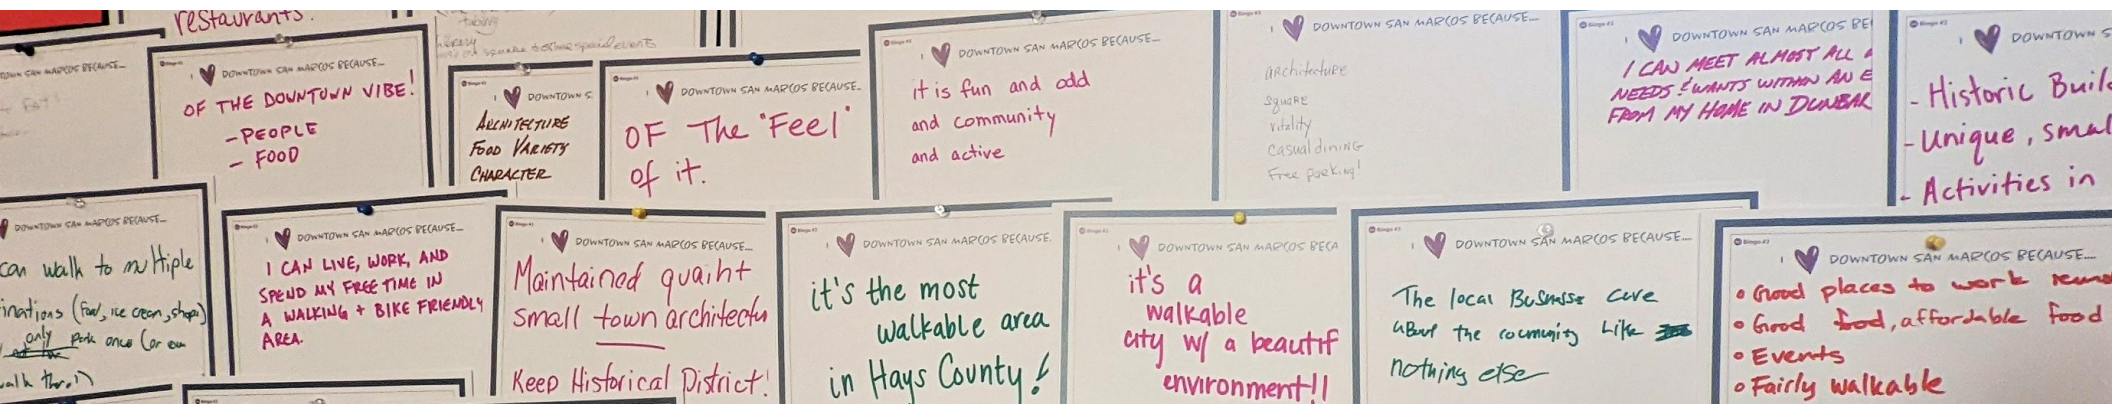 restaurants.
square to close special events
TOWN SAN MARCOS BECAUSE...
I ♥ DOWNTOWN SAN MARCOS BECAUSE...
OF THE DOWNTOWN VIBE!
- PEOPLE
- FOOD
I ♥ DOWNTOWN S
ARCHITECTURE
FOOD VARIETY
CHARACTER
I ♥ DOWNTOWN SAN MARCOS BECAUSE...
OF The "Feel"
of it.
I ♥ DOWNTOWN SAN MARCOS BECAUSE...
it is fun and odd
and community
and active
I ♥ DOWNTOWN SAN MARCOS BECAUSE...
architecture
square
vitality
casual dining
Free parking!
I ♥ DOWNTOWN SAN MARCOS BE
I CAN MEET ALMOST ALL
NEEDS & WANTS WITHIN AN E
FROM MY HOME IN DUNBAR
I ♥ DOWNTOWN S
- Historic Build
- Unique, smal
- Activities in
♥ DOWNTOWN SAN MARCOS BECAUSE...
can walk to multiple
inations (food, ice cream, shops)
only park once (or even
walk there!)
I ♥ DOWNTOWN SAN MARCOS BECAUSE...
I CAN LIVE, WORK, AND
SPEND MY FREE TIME IN
A WALKING + BIKE FRIENDLY
AREA.
I ♥ DOWNTOWN SAN MARCOS BECAUSE...
Maintained quaiht
small town architectu
Keep Historical District!
I ♥ DOWNTOWN SAN MARCOS BECAUSE.
it's the most
walkable area
in Hays County!
I ♥ DOWNTOWN SAN MARCOS BECA
it's a
walkable
city w/ a beautif
environment!!
I ♥ DOWNTOWN SAN MARCOS BECAUSE...
The local Busnsss care
about the community like
nothing else
I ♥ DOWNTOWN SAN MARCOS BECAUSE....
• Good places to work remo
• Good food, affordable food
• Events
• Fairly walkable